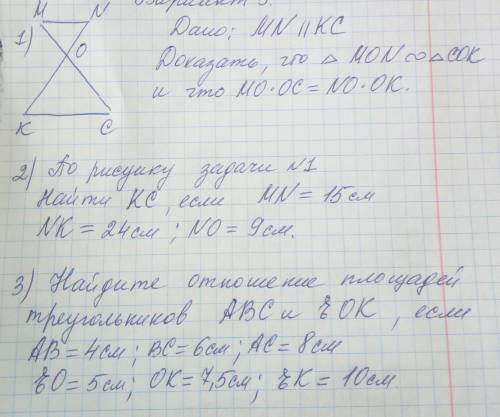 Вариант 3.
1)
M N
O
K C
Дано: MN || KC
Доказать, что △ MON ∞ △ COK
и что MO · OC = NO · OK.
2) По рисунку задачи №1
Найти KC, если MN = 15см
NK = 24см; NO = 9см.
3) Найдите отношение площадей
треугольников ABC и EOK, если
AB = 4см; BC = 6см; AC = 8см
EO = 5см; OK = 7,5см; EK = 10см